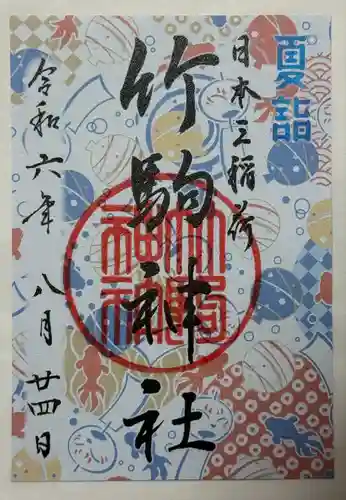 夏詣
日本三稲荷
竹駒神社
令和六年 八月廿四日